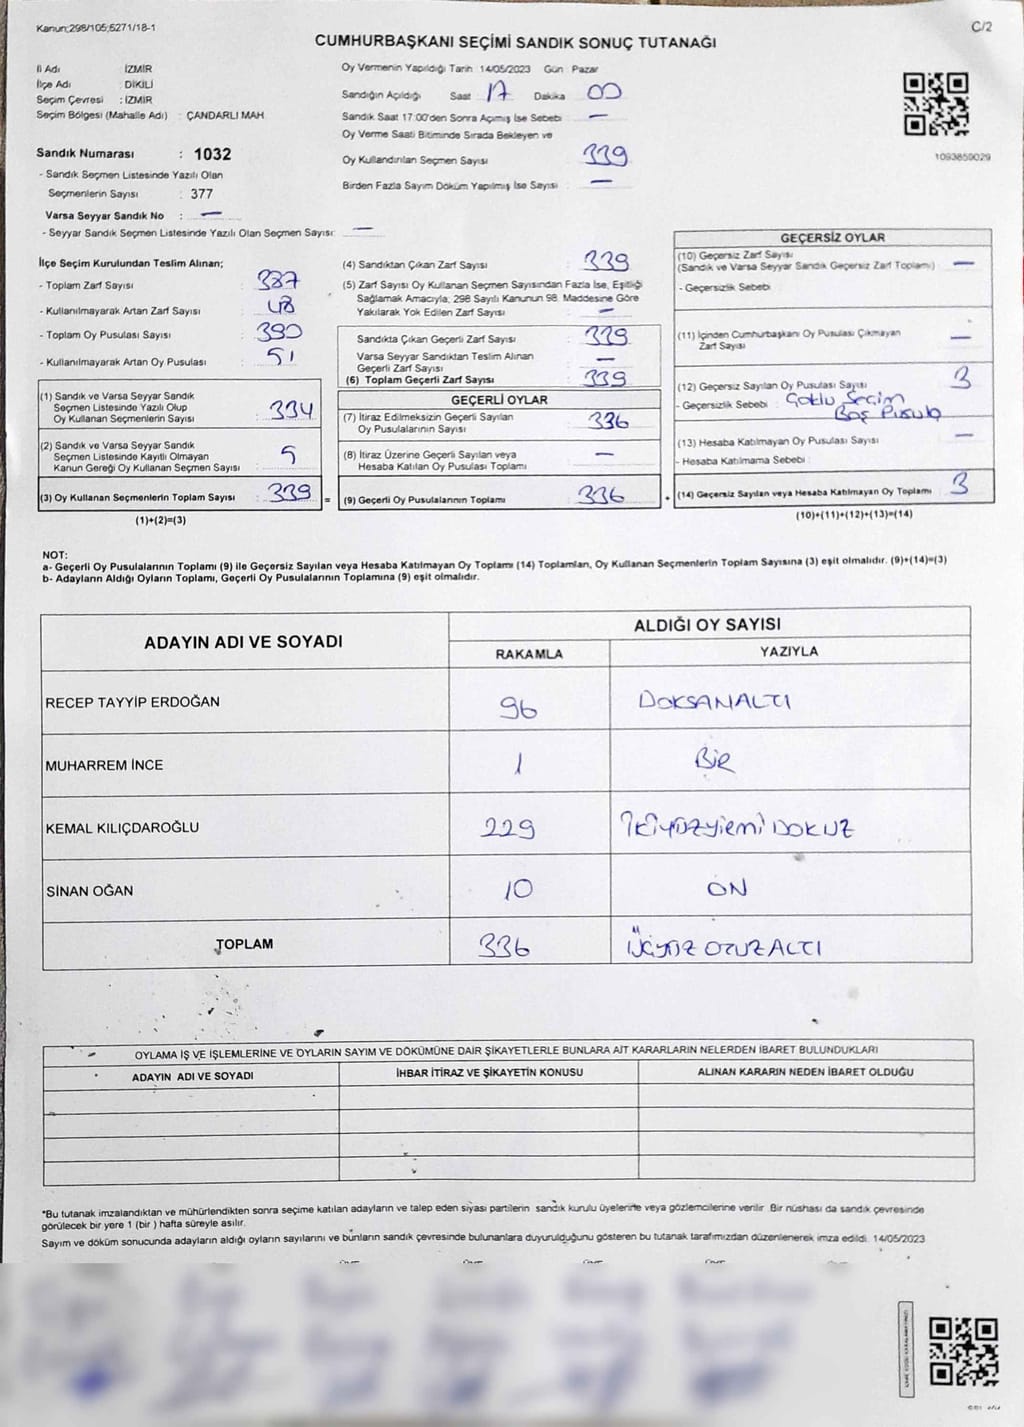 Kanun;298/105;5271/18-1
C/2
CUMHURBAŞKANI SEÇİMİ SANDIK SONUÇ TUTANAĞI
İl Adı : İZMİR
İlçe Adı : DİKİLİ
Seçim Çevresi : İZMİR
Seçim Bölgesi (Mahalle Adı) : ÇANDARLI MAH
Sandık Numarası : 1032
- Sandık Seçmen Listesinde Yazılı Olan
Seçmenlerin Sayısı : 377
Varsa Seyyar Sandık No : —
- Seyyar Sandık Seçmen Listesinde Yazılı Olan Seçmen Sayısı: —
Oy Vermenin Yapıldığı Tarih :14/05/2023 Gün : Pazar
Sandığın Açıldığı Saat 17 Dakika 00
Sandık Saat 17:00'den Sonra Açımış İse Sebebi : —
Oy Verme Saati Bitiminde Sırada Bekleyen ve
Oy Kullandırılan Seçmen Sayısı 339
Birden Fazla Sayım Döküm Yapılmış İse Sayısı : —
1093859029
İlçe Seçim Kurulundan Teslim Alınan;
- Toplam Zarf Sayısı : 387
- Kullanılmayarak Artan Zarf Sayısı : 48
- Toplam Oy Pusulası Sayısı : 390
- Kullanılmayarak Artan Oy Pusulası : 51
(1) Sandık ve Varsa Seyyar Sandık
Seçmen Listesinde Yazılı Olup
Oy Kullanan Seçmenlerin Sayısı : 334
(2) Sandık ve Varsa Seyyar Sandık
Seçmen Listesinde Kayıtlı Olmayan
Kanun Gereği Oy Kullanan Seçmen Sayısı : 5
(3) Oy Kullanan Seçmenlerin Toplam Sayısı : 339 =
(1)+(2)=(3)
(4) Sandıktan Çıkan Zarf Sayısı : 339
(5) Zarf Sayısı Oy Kullanan Seçmen Sayısından Fazla İse, Eşitliği
Sağlamak Amacıyla, 298 Sayılı Kanunun 98. Maddesine Göre
Yakılarak Yok Edilen Zarf Sayısı : —
Sandıkta Çıkan Geçerli Zarf Sayısı : 339
Varsa Seyyar Sandıktan Teslim Alınan
Geçerli Zarf Sayısı : —
(6) Toplam Geçerli Zarf Sayısı : 339
GEÇERLİ OYLAR
(7) İtiraz Edilmeksizin Geçerli Sayılan
Oy Pusulalarının Sayısı : 336
(8) İtiraz Üzerine Geçerli Sayılan veya
Hesaba Katılan Oy Pusulası Toplamı : —
(9) Geçerli Oy Pusulalarının Toplamı : 336 +
GEÇERSİZ OYLAR
(10) Geçersiz Zarf Sayısı
(Sandık ve Varsa Seyyar Sandık Geçersiz Zarf Toplamı) : —
- Geçersizlik Sebebi :
(11) İçinden Cumhurbaşkanı Oy Pusulası Çıkmayan
Zarf Sayısı : —
(12) Geçersiz Sayılan Oy Pusulası Sayısı : 3
- Geçersizlik Sebebi : Çoklu Seçim
Boş Pusula
(13) Hesaba Katılmayan Oy Pusulası Sayısı : —
- Hesaba Katılmama Sebebi :
(14) Geçersiz Sayılan veya Hesaba Katılmayan Oy Toplamı : 3
(10)+(11)+(12)+(13)=(14)
NOT:
a- Geçerli Oy Pusulalarının Toplamı (9) ile Geçersiz Sayılan veya Hesaba Katılmayan Oy Toplamı (14) Toplamları, Oy Kullanan Seçmenlerin Toplam Sayısına (3) eşit olmalıdır. (9)+(14)=(3)
b- Adayların Aldığı Oyların Toplamı, Geçerli Oy Pusulalarının Toplamına (9) eşit olmalıdır.
ADAYIN ADI VE SOYADI
ALDIĞI OY SAYISI
RAKAMLA YAZIYLA
RECEP TAYYİP ERDOĞAN 96 DOKSANALTI
MUHARREM İNCE 1 BİR
KEMAL KILIÇDAROĞLU 229 İKİYÜZYİRMİ DOKUZ
SİNAN OĞAN 10 ON
TOPLAM 336 ÜÇYÜZ OTUZALTI
OYLAMA İŞ VE İŞLEMLERİNE VE OYLARIN SAYIM VE DÖKÜMÜNE DAİR ŞİKAYETLERLE BUNLARA AİT KARARLARIN NELERDEN İBARET BULUNDUKLARI
ADAYIN ADI VE SOYADI İHBAR İTİRAZ VE ŞİKAYETİN KONUSU ALINAN KARARIN NEDEN İBARET OLDUĞU
*Bu tutanak imzalandıktan ve mühürlendikten sonra seçime katılan adayların ve talep eden siyasi partilerin sandık kurulu üyelerine veya gözlemcilerine verilir. Bir nüshası da sandık çevresinde
görülecek bir yere 1 (bir ) hafta süreyle asılır.
Sayım ve döküm sonucunda adayların aldığı oyların sayılarını ve bunların sandık çevresinde bulunanlara duyurulduğunu gösteren bu tutanak tarafımızdan düzenlenerek imza edildi. 14/05/2023